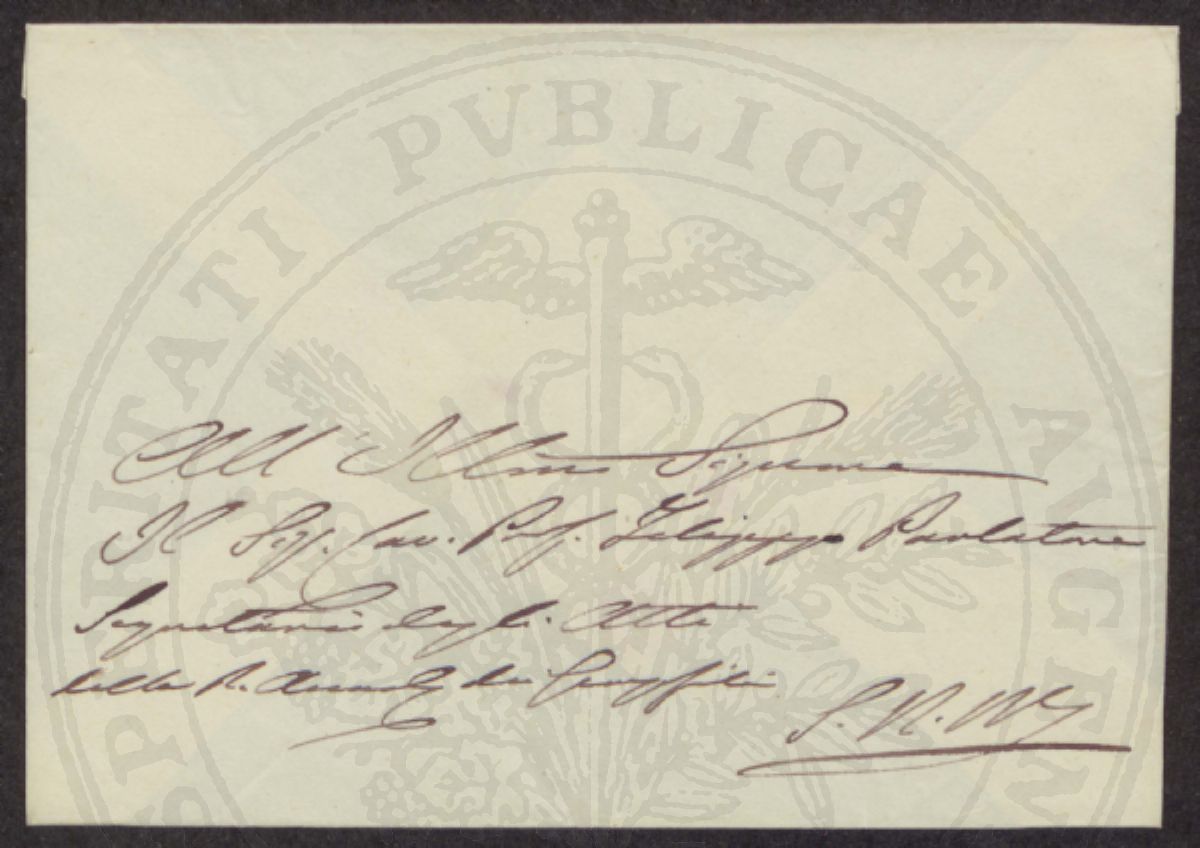 PROSPERITATI PVBLICAE AVGEN
All' Illmo Signore
Il Sig. Cav. Prof. Filippo Parlatore
Segretario degli Atti
della R. Accad. dei Georgofili
S. R. M.